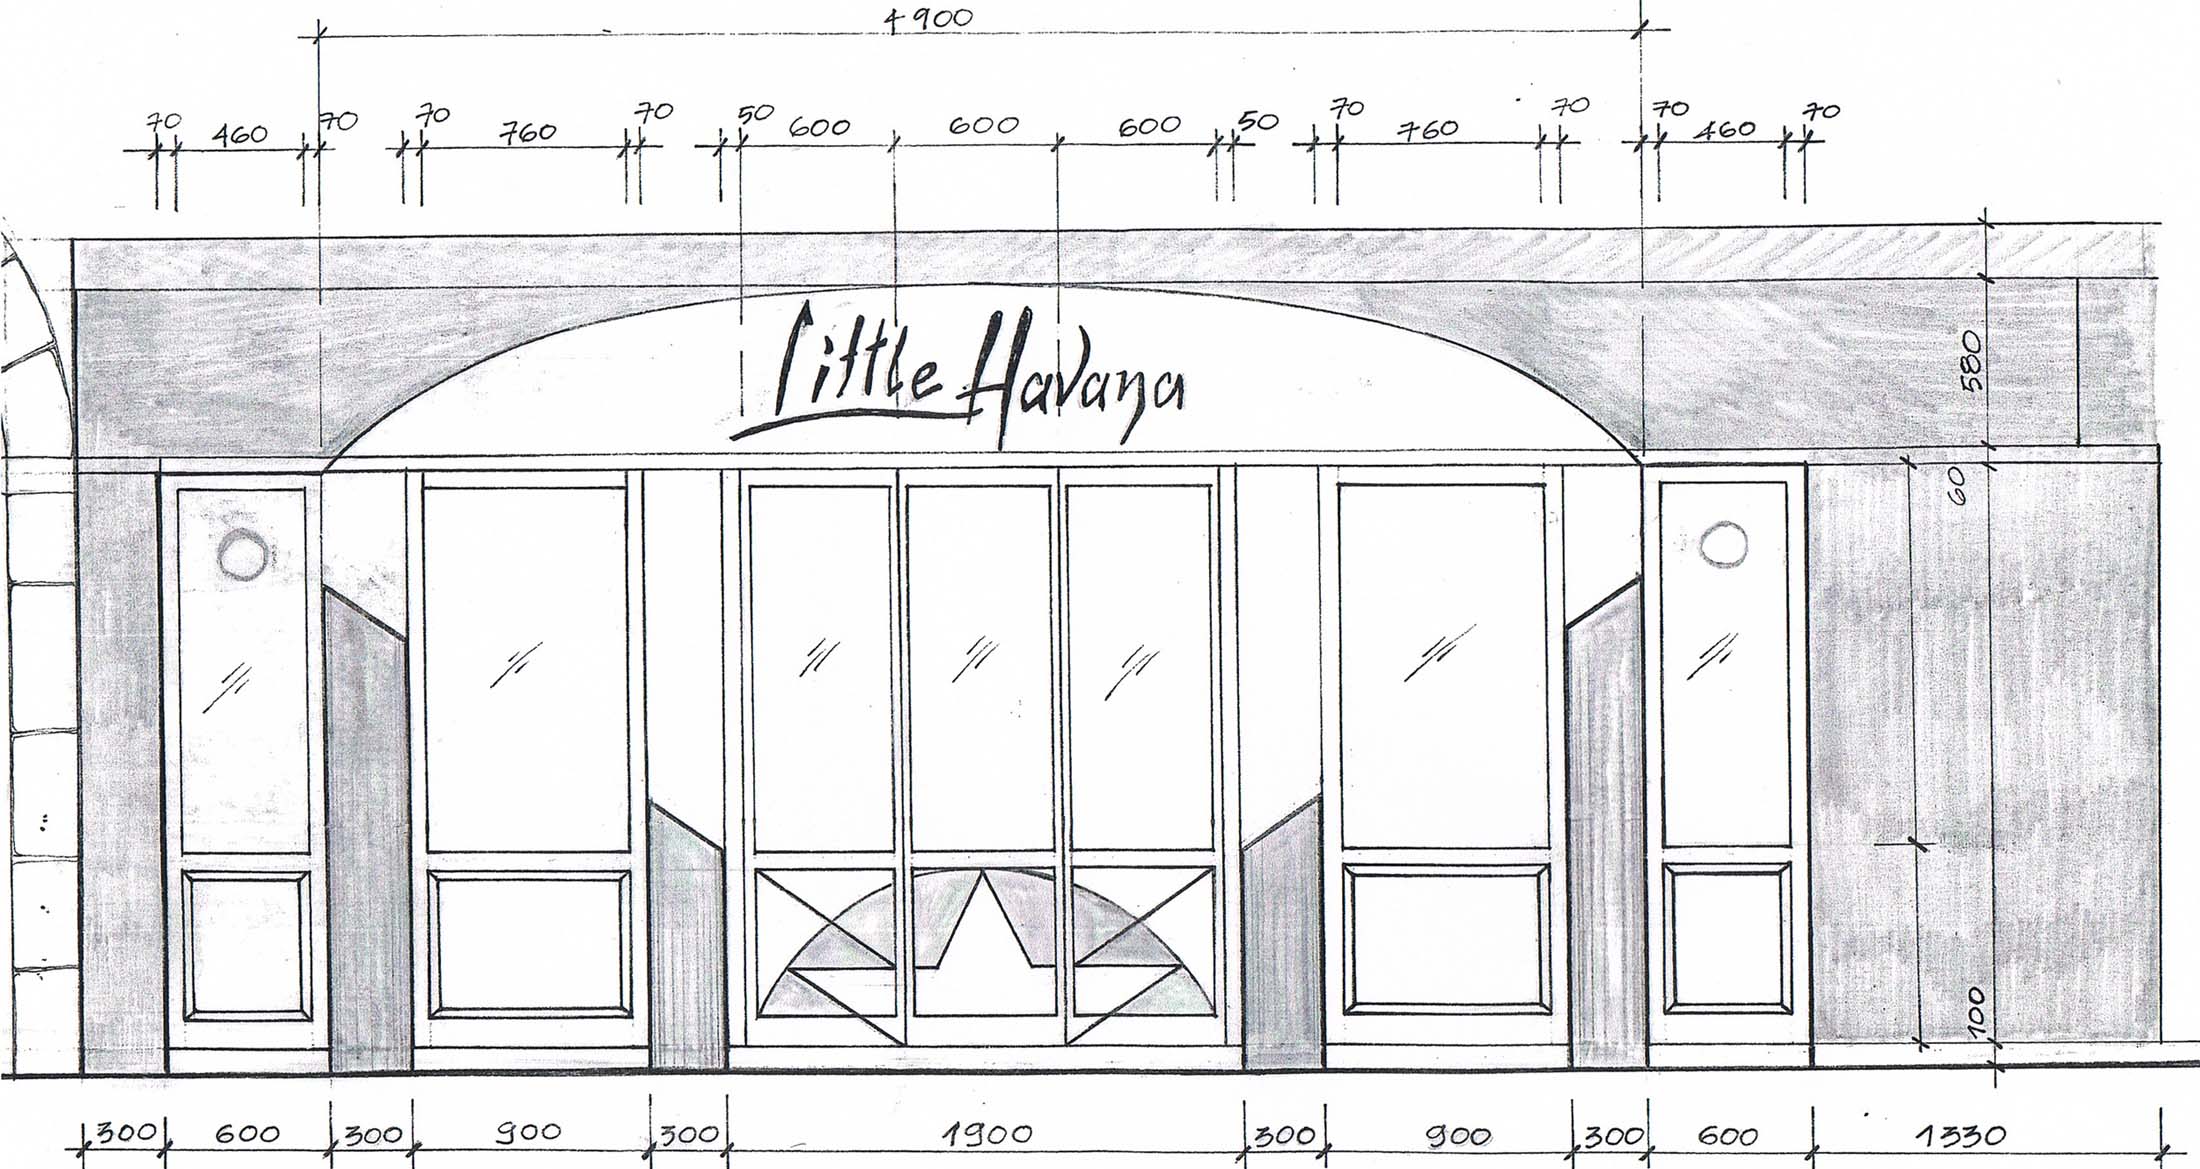 4900
70 460 70 70 760 70 50 600 600 600 50 70 760 70 70 460 70
Little Havana
580
60
100
300 600 300 900 300 1900 300 900 300 600 1330